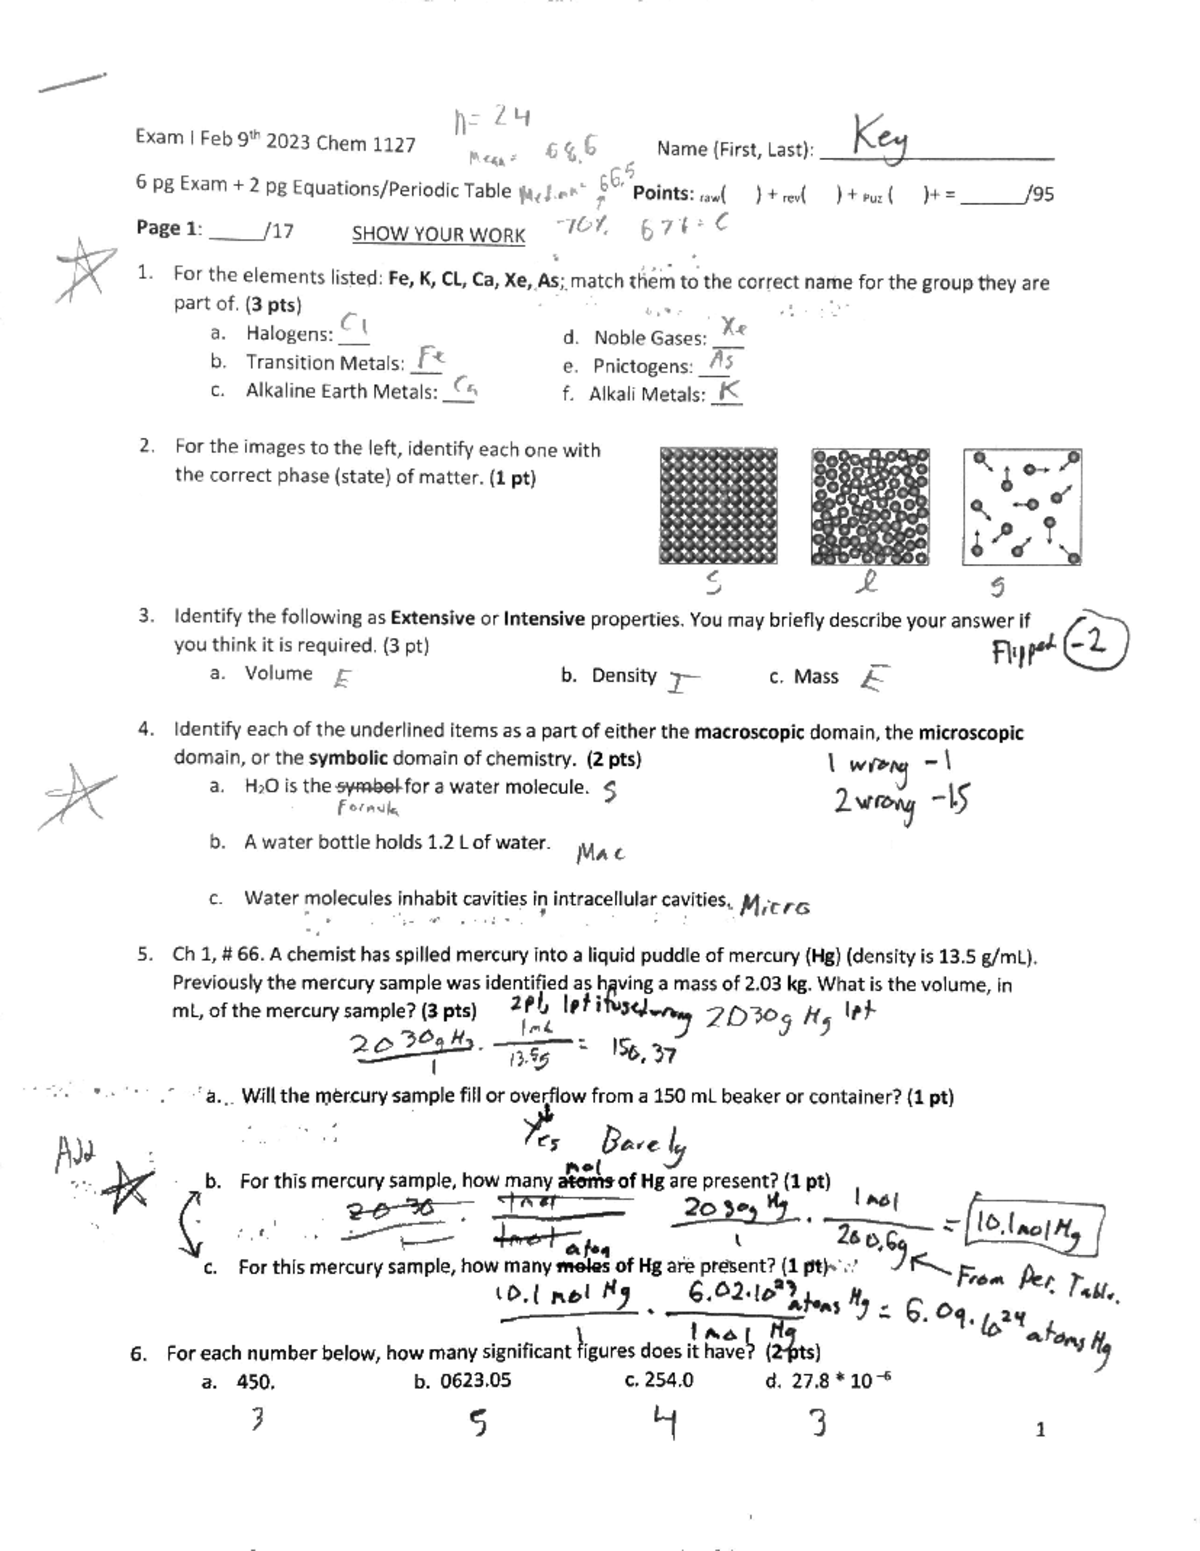 n= 24
Exam I Feb 9th 2023 Chem 1127
Mean = 68.6
Name (First, Last): Key
6 pg Exam + 2 pg Equations/Periodic Table Median = 66.5 Points: raw( ) + rev( ) + Puz ( )+ = ______/95
Page 1: _____/17 SHOW YOUR WORK ~70% 67% = C
1. For the elements listed: Fe, K, CL, Ca, Xe, As; match them to the correct name for the group they are
part of. (3 pts)
a. Halogens: Cl d. Noble Gases: Xe
b. Transition Metals: Fe e. Pnictogens: As
c. Alkaline Earth Metals: Ca f. Alkali Metals: K
2. For the images to the left, identify each one with
the correct phase (state) of matter. (1 pt)
s l g
3. Identify the following as Extensive or Intensive properties. You may briefly describe your answer if
you think it is required. (3 pt) Flipped -2
a. Volume E b. Density I c. Mass E
4. Identify each of the underlined items as a part of either the macroscopic domain, the microscopic
domain, or the symbolic domain of chemistry. (2 pts) 1 wrong -1
a. H₂O is the symbol for a water molecule. S 2 wrong -1.5
Formula
b. A water bottle holds 1.2 L of water. Mac
c. Water molecules inhabit cavities in intracellular cavities. Micro
5. Ch 1, # 66. A chemist has spilled mercury into a liquid puddle of mercury (Hg) (density is 13.5 g/mL).
Previously the mercury sample was identified as having a mass of 2.03 kg. What is the volume, in
mL, of the mercury sample? (3 pts) 2pt, 1pt if used wrong 2030g Hg 1pt
2030g Hg / 1 · 1mL / 13.5g = 150.37
a. Will the mercury sample fill or overflow from a 150 mL beaker or container? (1 pt)
Yes Barely
Add
mol
b. For this mercury sample, how many atoms of Hg are present? (1 pt)
2030 2030g Hg / 1 · 1 mol / 200.6g = 10.1 mol Hg
atom
c. For this mercury sample, how many moles of Hg are present? (1 pt) From Per. Table.
10.1 mol Hg / 1 · 6.02·10²³ atoms Hg / 1 mol Hg = 6.09·10²⁴ atoms Hg
6. For each number below, how many significant figures does it have? (2 pts)
a. 450. b. 0623.05 c. 254.0 d. 27.8 * 10⁻⁶
3 5 4 3
1